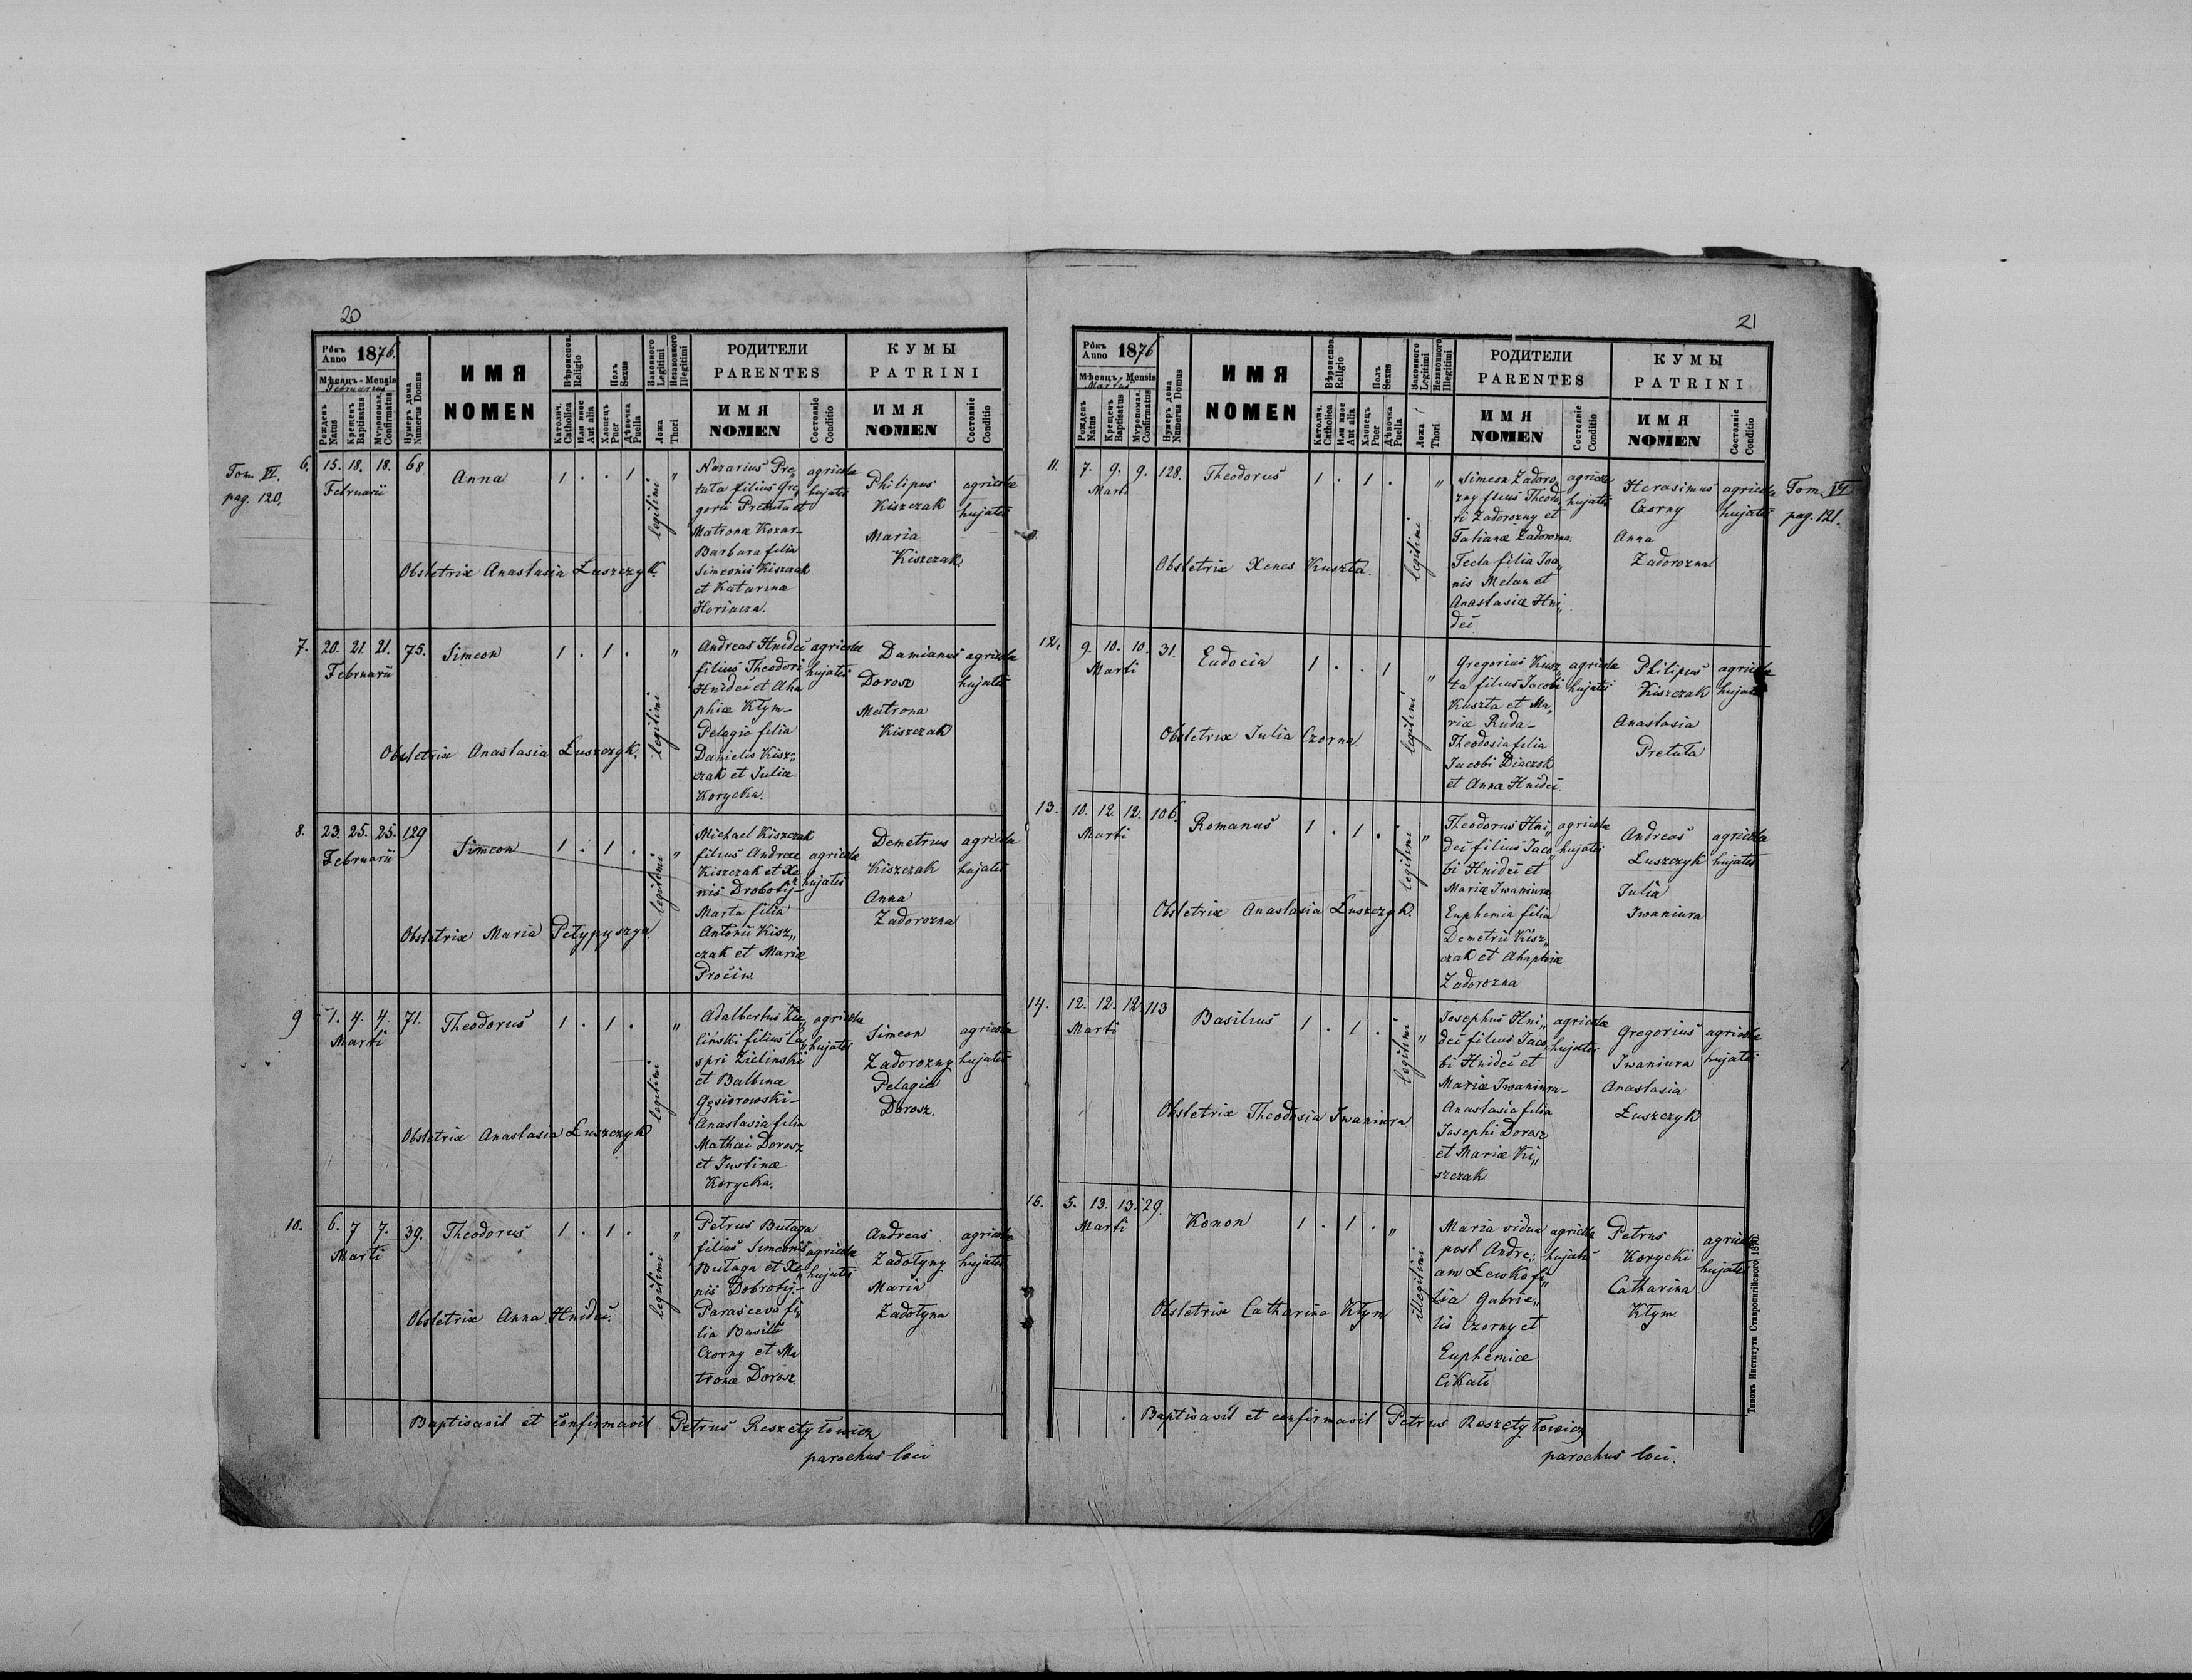 20
Рôкъ
Anno 1876.
Мѣсяцъ - Mensis
Februarius
Рожденъ
Natus
Крещенъ
Baptisatus
Муропомаз.
Confirmatus
Нумеръ дома
Numerus Domus
ИМЯ
NOMEN
Вѣроиспов.
Religio
Католич.
Catholica
Или иное
Aut alia
Полъ
Sexus
Хлопецъ
Puer
Дѣвочка
Puella
Законного
Legitimi
Незаконного
Illegitimi
Ложа
Thori
РОДИТЕЛИ
PARENTES
ИМЯ
NOMEN
Состояніе
Conditio
КУМЫ
PATRINI
ИМЯ
NOMEN
Состояніе
Conditio
Tom VI.
pag. 120.
6. 15. 18. 18. 68
Februarii
Anna
1 . . 1
legitimi
"
Nazarius Pre„
tuta filius Gre„
gorii Pretuta et
Matrona Kozar-
Barbara filia
Simeonis Kiszczak
et Katarinæ
Horiacza.
agricolæ
hujates
Philipus
Kiszczak
Maria
Kiszczak.
agricolæ
hujates
Obstetrix Anastasia Łuszczyk.
7. 20. 21. 21. 75.
Februarii
Simeon
1 . 1 .
legitimi
"
Andreas Hnidei
filius Theodori
Hnidei et Aha
phiæ Kłym-
Pelagia filia
Danielis Kisz„
czak et Juliæ
Korycka.
agricolæ
hujates
Damianus
Dorosz
Matrona
Kiszczak
agricolæ
hujates
Obstetrix Anastasia Łuszczyk.
8. 23. 25. 25. 129
Februarii
Simeon
1 . 1 .
legitimi
"
Michael Kiszczak
filius Andreæ
Kiszczak et Xe„
nis Drobotij-
Marta filia
Antonii Kisz„
czak et Mariæ
Prociw.
agricolæ
hujates
Demetrius
Kiszczak
Anna
Zadorozna
agricola
hujates
Obstetrix Maria Petypyszyn.
9 1. 4. 4. 71.
Marti
Theodorus
1 . 1 .
legitimi
"
Adalbertus Zie„
linski filius Ca„
spri Zielinski
et Balbinæ
Gęsiorowski-
Anastasia filia
Mathæi Dorosz
et Justinæ
Korycka.
agricolæ
hujates
Simeon
Zadorozny
Pelagia
Dorosz.
agricola
hujates
Obstetrix Anastasia Łuszczyk
10. 6. 7 7. 39.
Marti
Theodorus
1 . 1 .
legitimi
"
Petrus Butaga
filius Simeonis
Butaga et Xe„
nis Dobrotij.-
Parasceva fi„
lia Basilii
Czorny et Ma
tronæ Dorosz.
agricolæ
hujates
Andreas
Zadotyny
Maria
Zadotyna
agricolæ
hujates
Obstetrix Anna Hnidei.
Baptisavit et confirmavit Petrus Reszetyłowicz
parochus loci
21
Рôкъ
Anno 1876
Мѣсяцъ - Mensis
Martius
Рожденъ
Natus
Крещенъ
Baptisatus
Муропомаз.
Confirmatus
Нумеръ дома
Numerus Domus
ИМЯ
NOMEN
Вѣроиспов.
Religio
Католич.
Catholica
Или иное
Aut alia
Полъ
Sexus
Хлопецъ
Puer
Дѣвочка
Puella
Законного
Legitimi
Незаконного
Illegitimi
Ложа
Thori
РОДИТЕЛИ
PARENTES
ИМЯ
NOMEN
Состояніе
Conditio
КУМЫ
PATRINI
ИМЯ
NOMEN
Состояніе
Conditio
Tom. VI
pag. 121.
11. 7. 9. 9. 128.
Marti
Theodorus
1 . 1 .
legitimi
"
Simeon Zadoro„
zny filius Theodo„
ri Zadorozny et
Tatianæ Zadorozna.
Tecla filia Joa„
nis Melan et
Anastasiæ Hni„
dei.
agricolæ
hujates
Herasimus
Czorny
Anna
Zadorozna
agricolæ
hujates
Obstetrix Xenes Kuszta.
12. 9. 10. 10. 31.
Marti
Eudocia
1 . . 1
legitimi
"
Gregorius Kusz„
ta filius Jacobi
Kuszta et Ma„
riæ Ruda-
Theodosia filia
Jacobi Diaczok
et Annæ Hnidei.
agricolæ
hujates
Philipus
Kiszczak
Anastasia
Pretuta
agricolæ
hujates
Obstetrix Julia Czorna.
13. 10. 12. 12. 106.
Marti
Romanus
1 . 1 .
legitimi
"
Theodorus Hni„
dei filius Jaco„
bi Hnidei et
Mariæ Iwaniura
Euphemia filia
Demetrii Kisz„
czak et Ahaphiæ
Zadorozna
agricolæ
hujates
Andreas
Łuszczyk
Julia
Iwaniura
agricola
hujates
Obstetrix Anastasia Łuszczyk.
14. 12. 12. 12. 113
Marti
Basilius
1 . 1 .
legitimi
"
Josephus Hni„
dei filius Jaco„
bi Hnidei et
Mariæ Iwaniura-
Anastasia filia
Josephi Dorosz
et Mariæ Ki„
szczak
agricolæ
hujates
Gregorius
Iwaniura
Anastasia
Łuszczyk
agricola
hujates
Obstetrix Theodosia Iwaniura
15. 5. 13. 13. 29.
Marti
Konon
1 . 1 . "
illegitimi
Maria vidua
post Andre„
am Lewko fi„
lia Gabrie„
lis Czorny et
Euphemiæ
Cikało
agricola
hujates
Petrus
Korycki
Catharina
Kłym.
agricola
hujates
Obstetrix Catharina Kłym
Baptisavit et confirmavit Petrus Reszetyłowicz
parochus loci.
Типомъ Института Ставропигійского 1870.